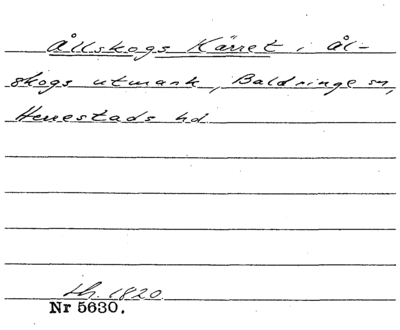 Ållskogs Kärret i Ål-
skogs utmark, Baldringe sn,
Herrestads hd
Lh. 1820
Nr 5630.